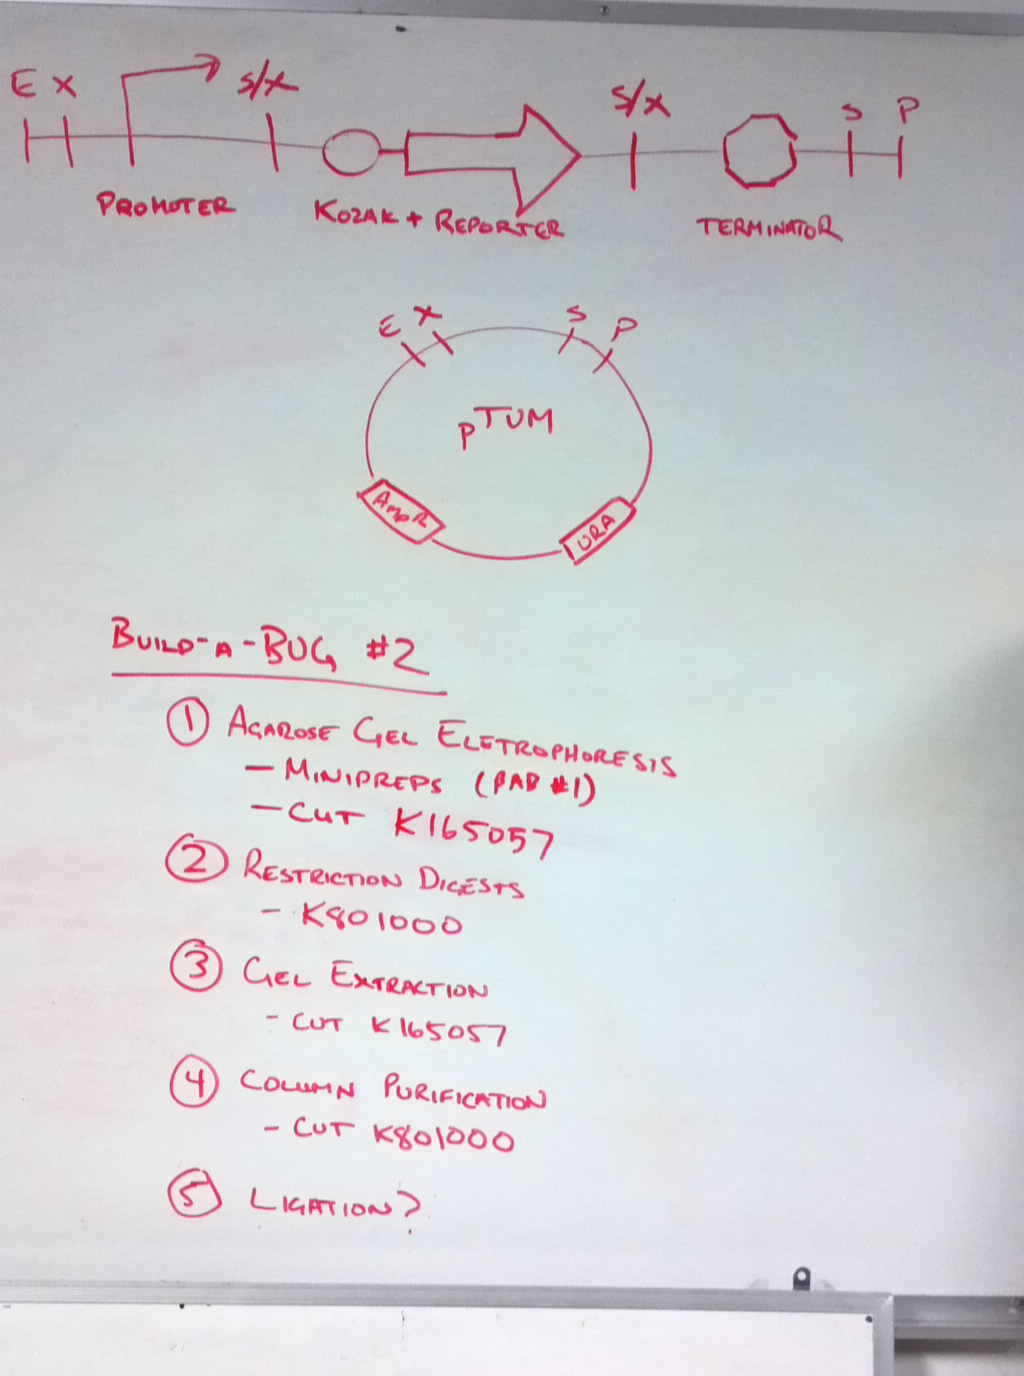 E X S/X S/X S P
PROMOTER KOZAK + REPORTER TERMINATOR
E X S P
pTUM
AmpR URA
BUILD-A-BUG #2
① AGAROSE GEL ELETROPHORESIS
- MINIPREPS (BAB #1)
- CUT K165057
② RESTRICTION DIGESTS
- K801000
③ GEL EXTRACTION
- CUT K165057
④ COLUMN PURIFICATION
- CUT K801000
⑤ LIGATION?